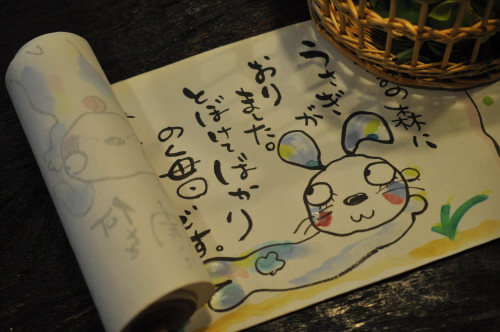 の森に
うさぎが
おりました。
とぼけてばかり
の毎日です。